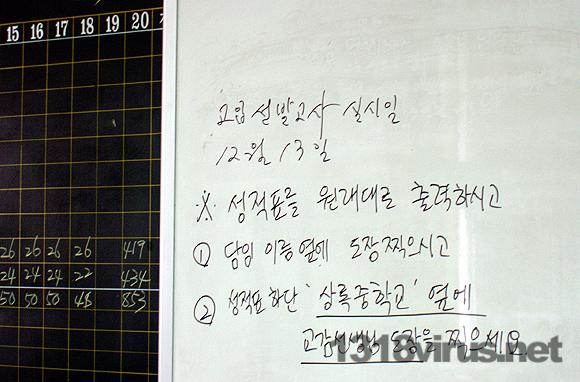 15 16 17 18 19 20
고입선발고사 실시일
12월 13일
※ 성적표를 원래대로 출력하시고
① 담임 이름 옆에 도장 찍으시고
② 성적표 하단 '상록중학교' 옆에
교감선생님 도장을 찍으세요.
26 26 26 26 419
24 24 24 22 434
50 50 50 48 853
1318virus.net